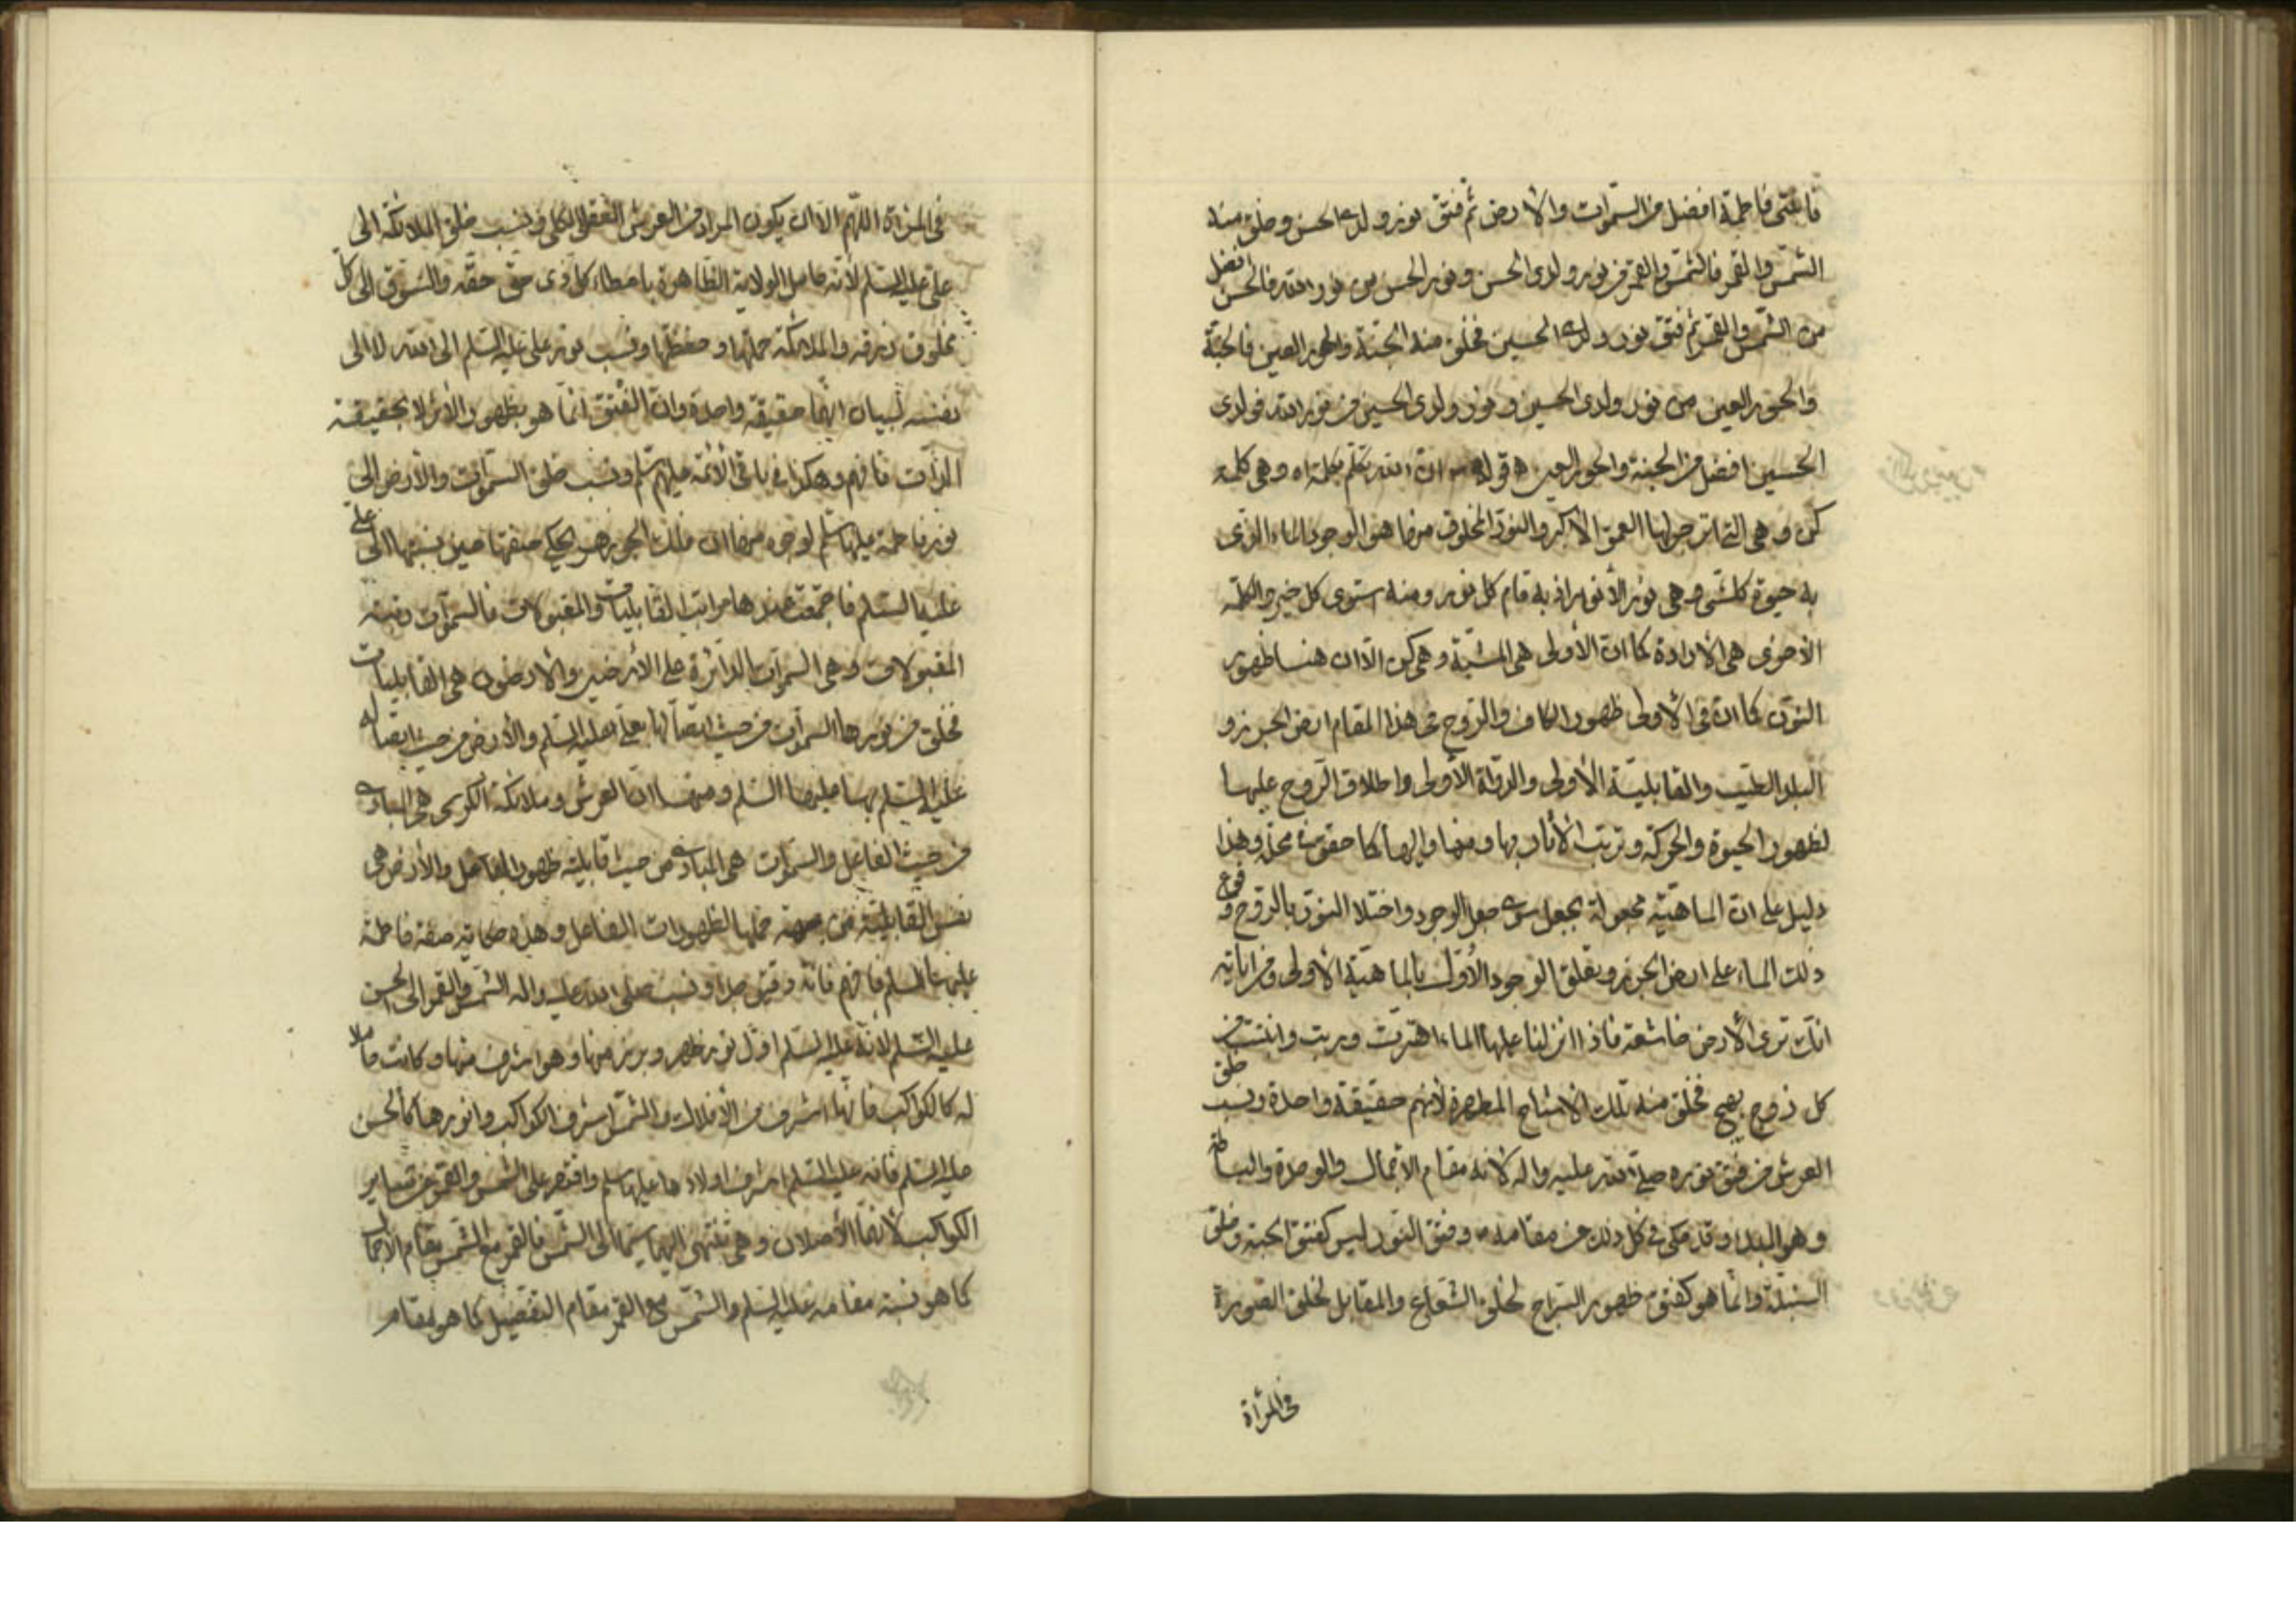 فابنتى فاطمة افضل من السموات والارض ثم فتق نور ولدى الحسن وخلق منه
الشمس والقمر فالشمس والقمر من نور ولدى الحسن ونور الحسن من نور الله فالحسن افضل
من الشمس والقمر ثم فتق نور ولدى الحسين فخلق منه الجنة والحور العين فالجنة
والحور العين من نور ولدى الحسين ونور ولدى الحسين من نور الله فولدى
الحسين افضل من الجنة والحور العين ه قوله ان الله تكلم بكلمة اه وهى كلمة
كن وهى التى انزجر لها العمق الاكبر والنور المخلوق منها هو الوجود الماء الذى
به حيوة كلشى وهى نور الانوار اذ به قام كل نور ومنه استوى كل خير والكلمة
الاخرى هى الارادة كما ان الاولى هى المشية وهى كن الا ان هنا ظهور
النون كما ان فى الاولى ظهور الكاف والروح فى هذا المقام ارض الجرز و
البلد الطيب والقابلية الاولى والدواة الاولى واطلاق الروح عليها
لظهور الحيوة والحركة وترتب الاثار بها ومنها واليها كما حقق فى محله وهذا
دليل على ان الماهية مجعولة بجعل سوى جعل الوجود واختلاط النور بالروح وقوع
ذلك الماء على ارض الجرز وتعلق الوجود الاول بالماهية الاولى ومن اياته
انك ترى الارض خاشعة فاذا انزلنا عليها الماء اهتزت وربت وانبتت من
كل زوج بهيج فخلق منه تلك الاشباح المطهرة لانهم حقيقة واحدة ونسب خلق
العرش من فتق نوره صلى الله عليه واله لانه مقام الاجمال والوحدة والبساطة
وهو المبدا وقد حكى فى كل ذلك عن مقامه وفتق النور ليس كفتق الحبة وخلق
السنبلة وانما هو كفتق ظهور السراج لخلق الشعاع والمقابل لخلق الصورة
فى المراة
فى المراة اللهم الا ان يكون المراد من العرش العقل الكلى ونسب خلق الملائكة الى
على عليه السلم لانه حامل الولاية الظاهرة باعطاء كل ذى حق حقه والسوق الى كل
مخلوق رزقه والملائكة حملتها وحفظتها ونسب نور على عليه السلم الى الله لا الى
نفسه لبيان انهما حقيقة واحدة وان الفتق انما هو بظهور الاثر لا بحقيقة
الذات فافهم وهكذا فى باقى الائمة عليهم سلم ونسب خلق السموات والارض الى
نور فاطمة عليها سلم لوجوه منها ان فلك الجوزهر يحكى صفتها حين نسبتها الى على
عليه السلم فاجتمعت عندها مراتب القابليات والمقبولات فالسموات رتبة
المقبولات وهى السموات الدائرة على الارضين والارضون هى القابليات
فخلق من نورها السموات من حيث اتصالها بعلى عليه السلم والارض من حيث اتصاله
عليه السلم بها عليهما السلم ومنها ان العرش وملائكة الكرسى هى المبادى
من حيث الفاعل والسموات هى المبادى من حيث قابلية ظهور الفاعل والارض هى
نفس القابلية من جهة حملها لظهورات الفاعل وهذه حكاية صفة فاطمة
عليها السلم فافهم فانه دقيق جدا ونسب صلى الله عليه واله الشمس والقمر الى الحسن
عليه السلم لانه عليه السلم اول نور ظهر وبرز منها وهو اشرف منها وكانت حاملا
له كالكواكب فانها اشرف من الافلاك والشمس اشرف الكواكب وانورها كالحسن
عليه السلم فانه عليه السلم اشرف اولادها عليها سلم واقتصر على الشمس والقمر من ساير
الكواكب لانهما الاصلان وهى تنتهى اليهما سيما الى الشمس فالقمر مع الشمس مقام الاجمال
كما هو نسبة مقامه عليه السلم والشمس مع القمر مقام التفصيل كما هو مقام